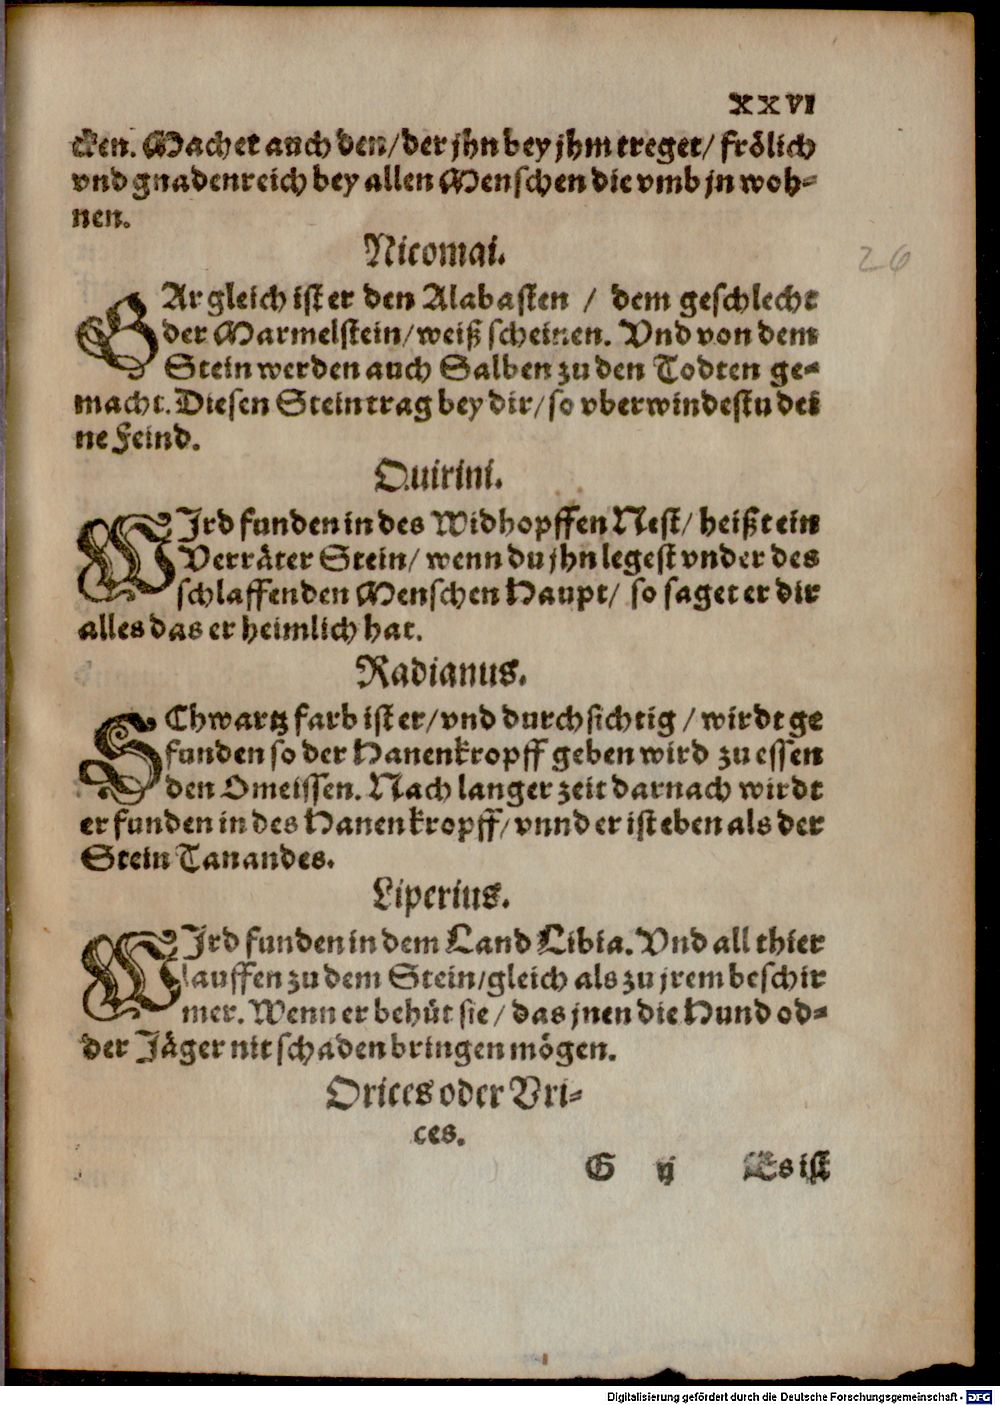 XXVI
cken. Machet auch den/ der jhn bey jhm treget/ frölich
vnd gnadenreich bey allen Menschen die vmb jn woh-
nen.
Nicomai.
26
GAr gleich ist er den Alabasten / dem geschlecht
der Marmelstein/ weiß scheinen. Vnd von dem
Stein werden auch Salben zu den Todten ge-
macht. Diesen Stein trag bey dir/ so vberwindestu dei
ne Feind.
Quirini.
WIrd funden in des Widhopffen Nest/ heißt ein
Verräter Stein/ wenn du jhn legest vnder des
schlaffenden Menschen Haupt/ so saget er dir
alles das er heimlich hat.
Radianus.
SChwartz farb ist er/ vnd durchsichtig / wirdt ge
funden so der Hanenkropff geben wird zu essen
den Omeissen. Nach langer zeit darnach wirdt
er funden in des Hanenkropff/ vnnd er ist eben als der
Stein Tanandes.
Liperius.
WIrd funden in dem Land Libia. Vnd all thier
lauffen zu dem Stein/ gleich als zu jrem beschir
mer. Wenn er behüt sie / das jnen die Hund od-
der Jäger nit schaden bringen mögen.
Orices oder Vri-
ces.
G ij Es ist
Digitalisierung gefördert durch die Deutsche Forschungsgemeinschaft - DFG